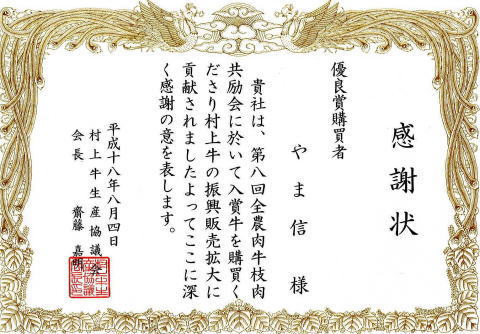 感謝状
優良賞購買者
やま信様
貴社は、第八回全農肉牛枝肉
共励会に於いて入賞牛を購買く
ださり村上牛の振興販売拡大に
貢献されましたよってここに深
く感謝の意を表します。
平成十八年八月四日
村上牛生産協議会
会長 齋藤嘉明